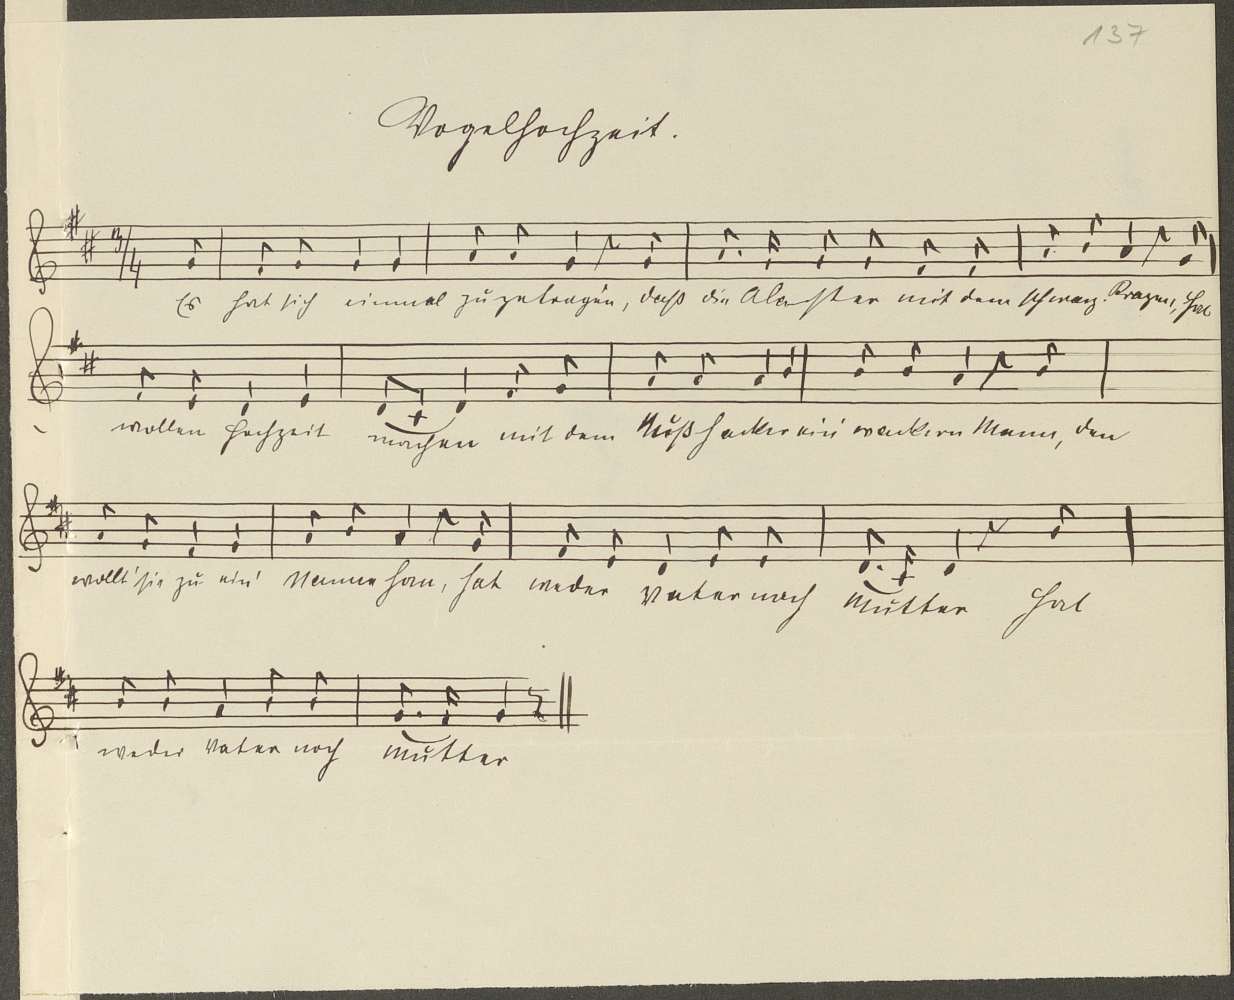 137
Vogelhochzeit.
3/4
Es hat sich einmal zu getragen, daß die Alaster mit dem schwarz. Kragen, hat
wollen Hochzeit machen mit dem Nußhacker ein' wackern Mann, den
wollt' sie zu ein' Manne han, hat weder Vater noch Mutter hat
weder Vater noch Mutter